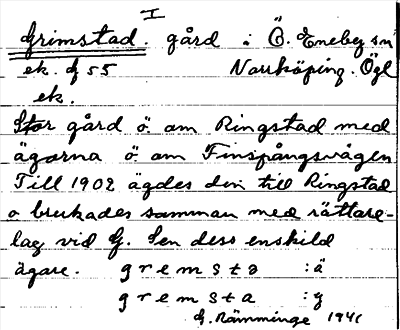 I
Grimstad. gård i Ö. Eneby sn
ek. G 55 Norrköping. Ögl
ek.
Stor gård ö. om Ringstad med
ägorna ö. om Finspångsvägen
Till 1902 ägdes den till Ringstad
o brukades samman med rättare-
lag vid G. Sen dess enskild
ägare. gremsta :ä
gremsta :y
G. Rämminge 1941